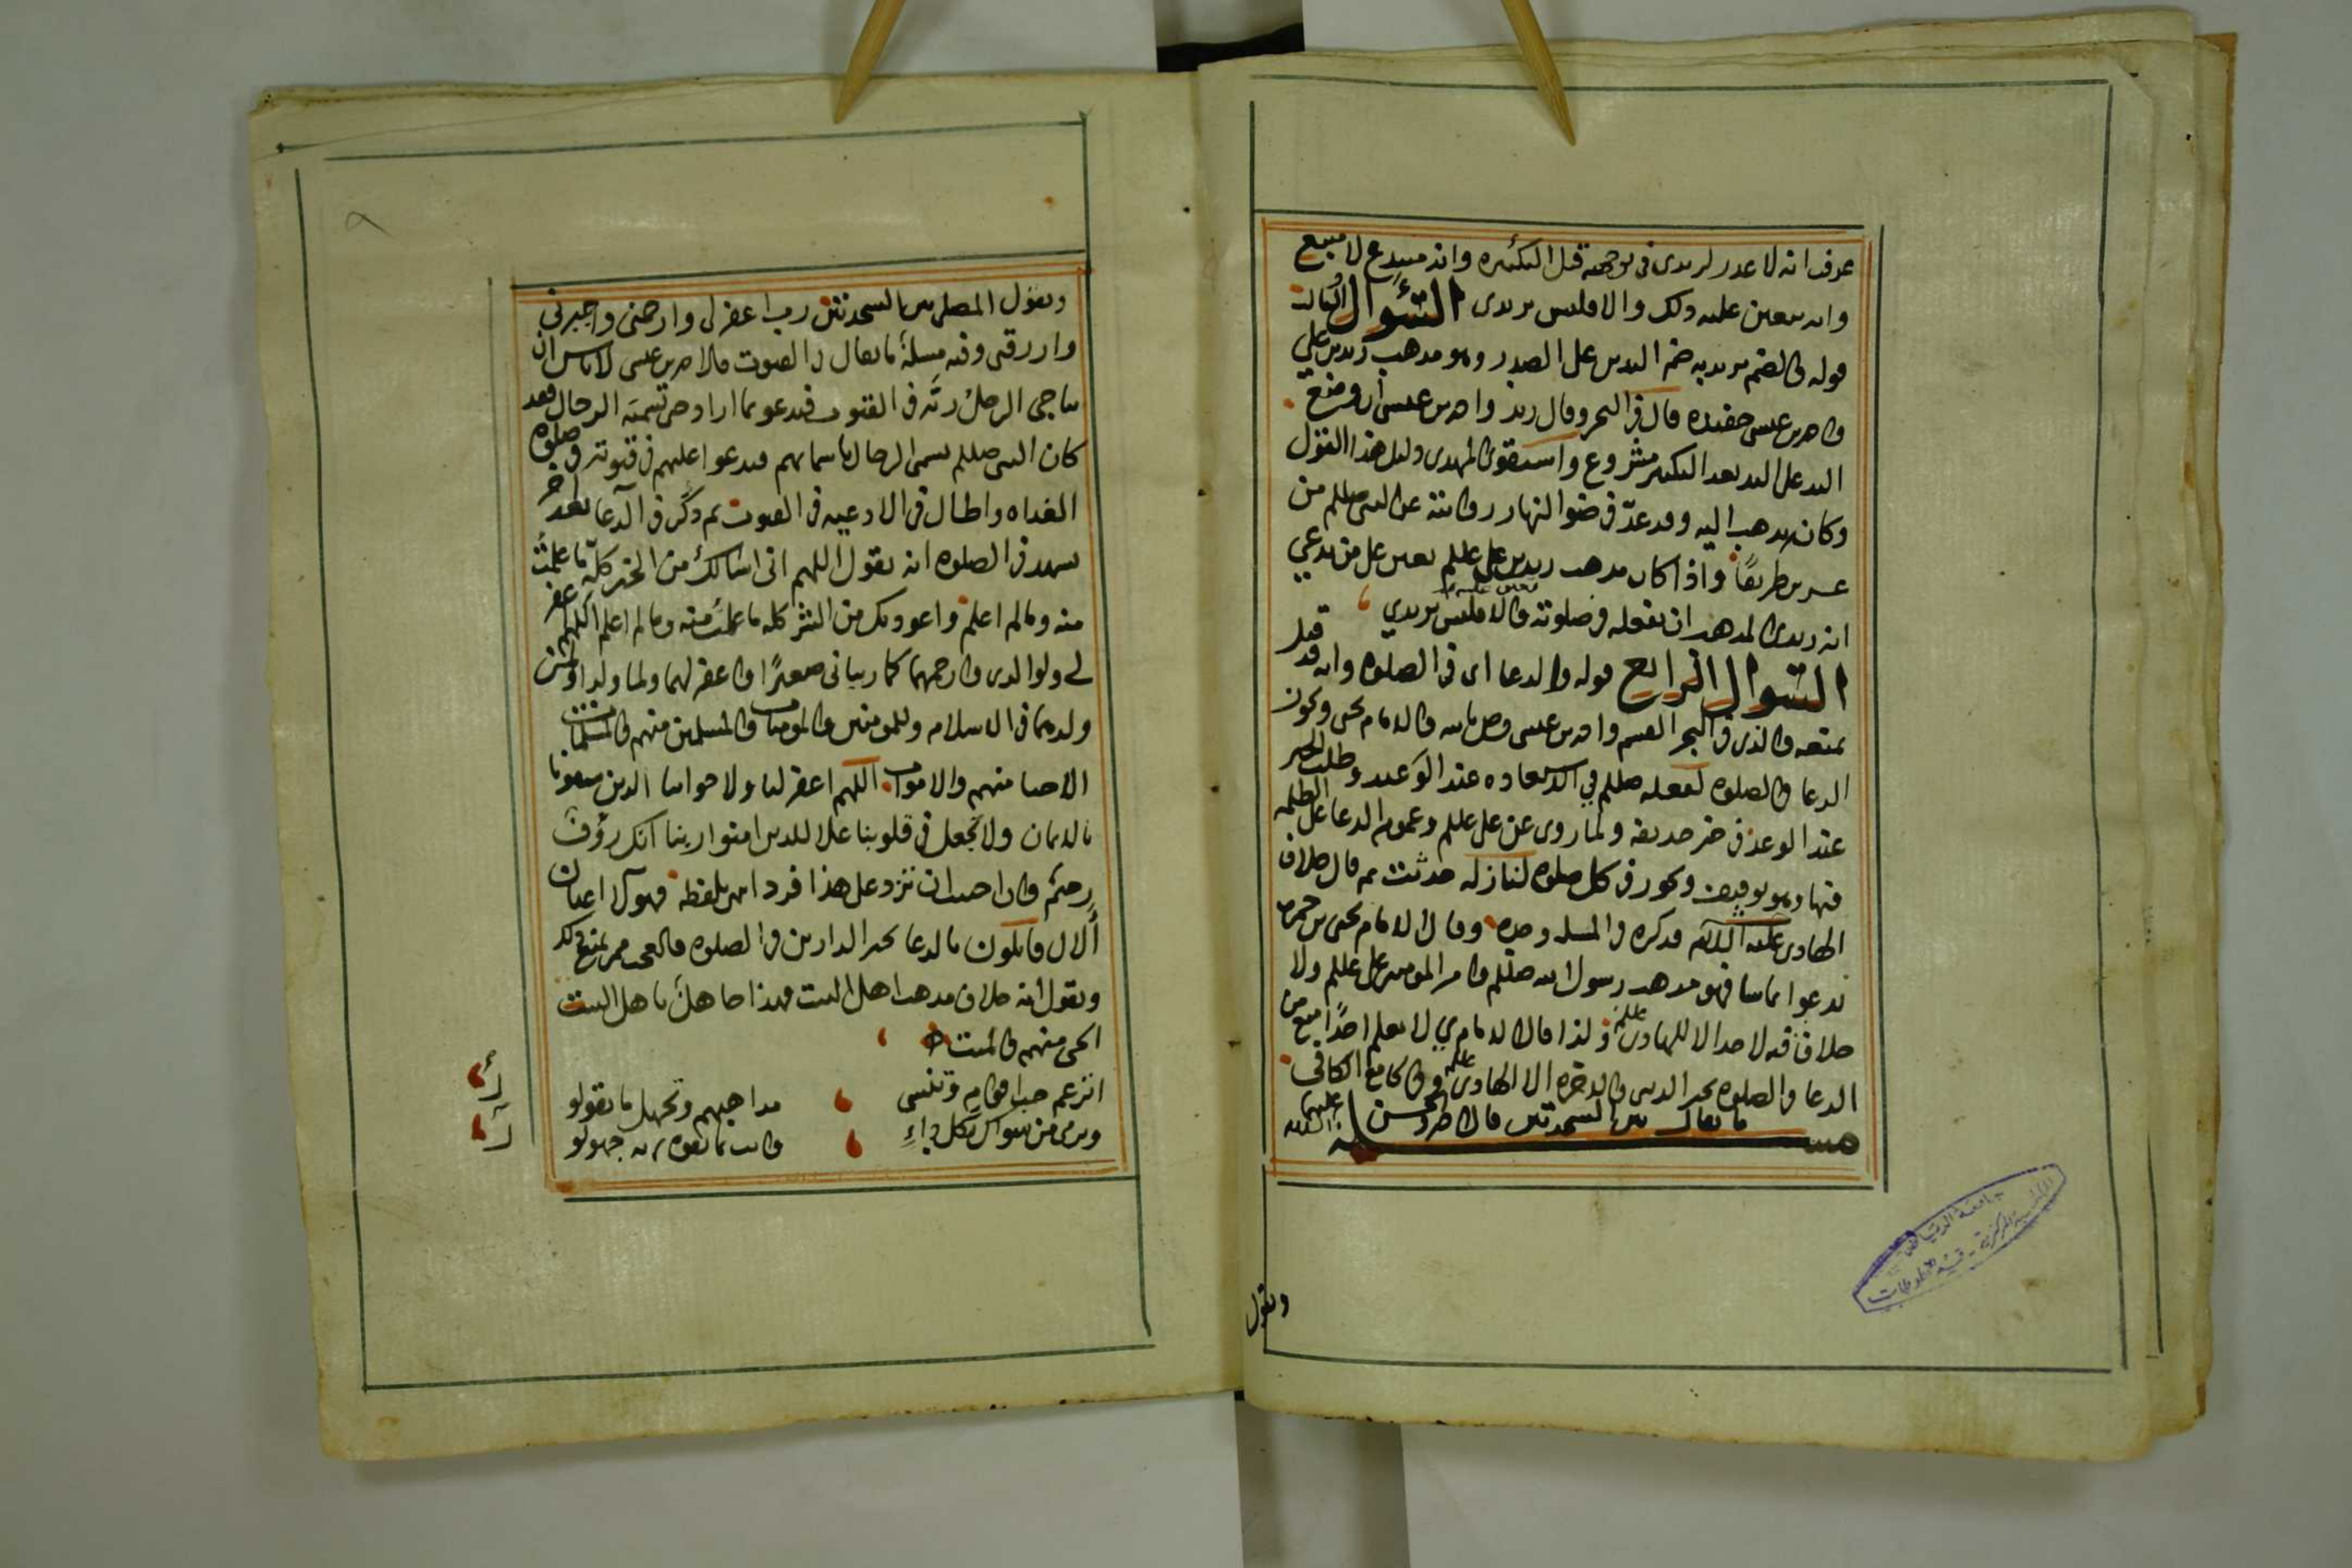 عرف انه لا عذر لزيدي في توجهه قبل التكبيره وانه مبتدع لا متبع
وانه يتعين عليه ذلك والا فليس بزيدي السؤال الثالث
قوله والضم يريد به ضم اليدين على الصدر وهو مذهب زيد بن علي
واحمد بن عيسى حفيده قال في البحر وقال زيد واحمد بن عيسى ان وضع
اليد على اليد بعد التكبير مشروع واستقواه المهدي دليل هذا القول
وكان يذهب اليه وقد عد في ضوء النهار رواته عن النبي صللم من
عشرين طريقا واذا كان مذهب زيد بن علي عللم تعين على من يدعي
انه زيدي المذهب ان يفعله في صلوته والا فليس بزيدي
السؤال الرابع قوله والدعا اي في الصلوه وانه قد قيل
بمنعه والذي في البحر القسم واحمد بن عيسى وص بالله والامام يحيى ويكون
الدعا في الصلوه لفعله صللم في الاستعاذه عند الوعيد وطلب الخير
عند الوعد في خبر حذيفه ولما روي عن علي عللم وعموم الدعا على الظلمه
فيها وهو توقيف ويجوز في كل صلوه لنازله حدثت ثم قال خلاف
الهادي عليه السلام فذكره في المسله وحده وقال الامام يحيى بن حمزه
ندعوا بما شا فهو مذهب رسول الله صللم وامير المومنين علي عللم ولا
خلاف فيه لاحد الا للهادي عللم ولذا قال الامام ي لا نعلم احدا منع من
الدعا في الصلوه بخير الدنيا والاخره الا الهادي عللم وفي الجامع الكافي
مسله ما يقال بين السجدتين قال احمد والحسن عليهما السلام
ويقول
ويقول المصلي بين السجدتين رب اغفر لي وارحمني واجبرني
وارزقني وفيه مسلة ما يقال في القنوت قال احمد بن عيسى لا باس ان
يناجي الرجل ربه في القنوت فيدعو بما اراد من تسمية الرجال فقد
كان النبي صللم يسمي الرجال باسمائهم فيدعوا عليهم في قنوته في صلوة
الغداه واطال في الادعيه في القنوت ثم ذكر في الدعا بعد اخر
تشهد في الصلوه انه يقول اللهم اني اسالك من الخير كله ما علمت
منه وما لم اعلم واعوذ بك من الشر كله ما علمت منه وما لم اعلم اللهم اغفر
لي ولوالدي وارحمهما كما ربياني صغيرا واغفر لهما ولما ولدا ولمن
ولدهما في الاسلام وللمومنين والمومنات والمسلمين منهم والمسلمات
الاحيا منهم والاموات اللهم اغفر لنا ولاخواننا الذين سبقونا
بالايمان ولا تجعل في قلوبنا غلا للذين امنوا ربنا انك رؤف
رحيم وان احببت ان تزد على هذا فزد انتهى بلفظه فهولا اعيان
الال قايلون بالدعا بخير الدارين في الصلوه فالعجب ممن يمنع ذلك
ويقول انه خلاف مذهب اهل البيت فهذا جاهل باهل البيت
الحي منهم والميت
اتزعم حب اقوام وتنسى مذاهبهم وتجهل ما يقولو
وترمي من سواك بكل داء وانت بما تفوه به جهولو